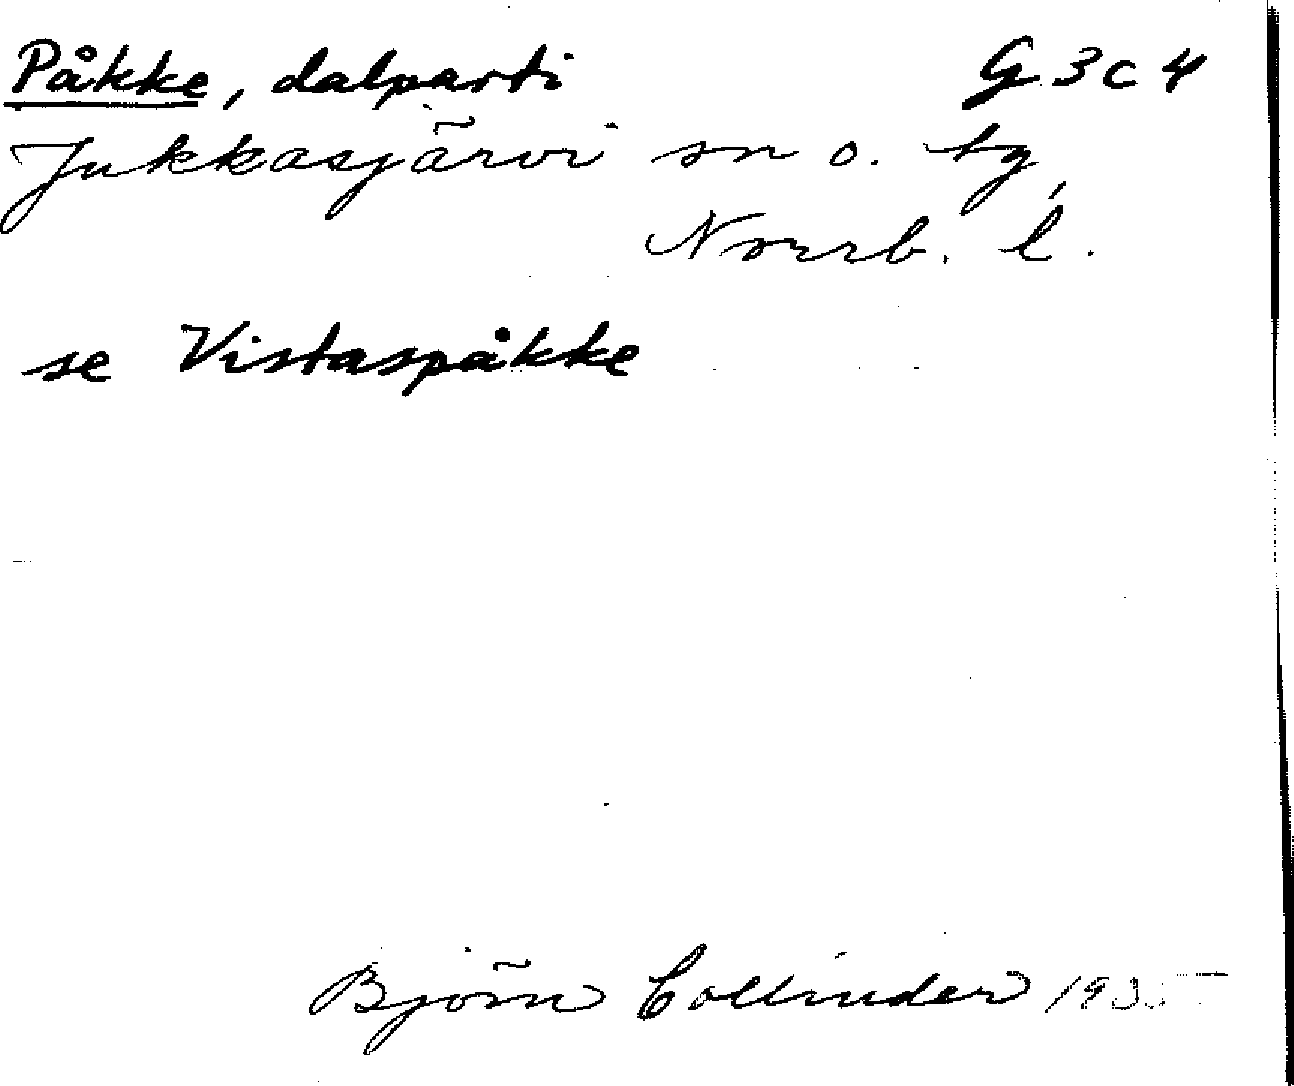 Påkke, dalparti G 3 c 4
Jukkasjärvi sn o. tg,
Norrb. l.
se Vistaspåkke
Björn Collinder 1935